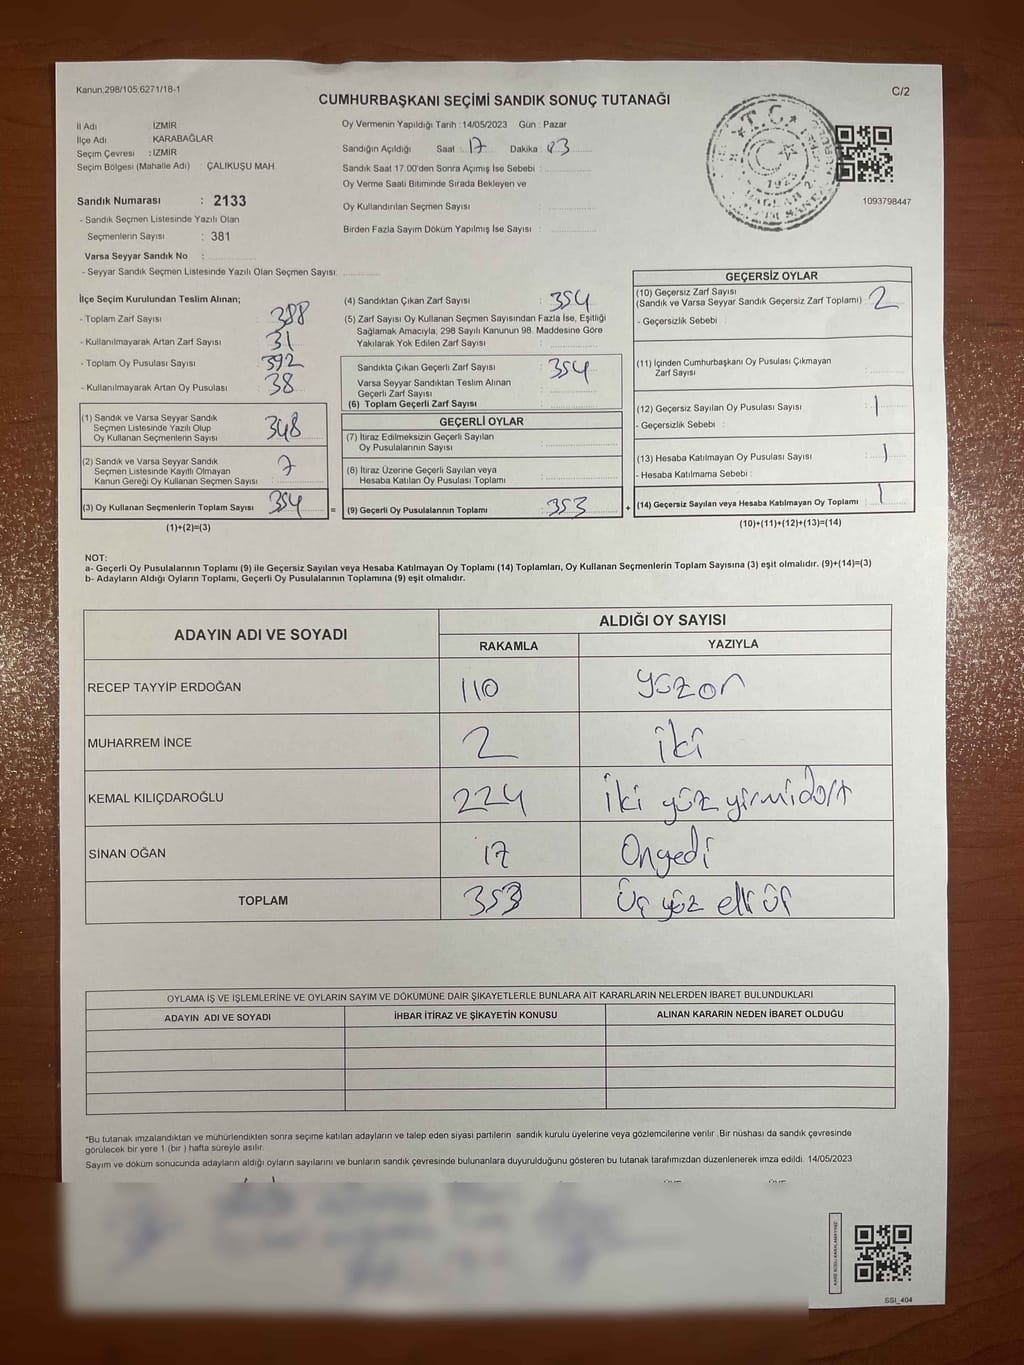 Kanun,298/105,6271/18-1
C/2
CUMHURBAŞKANI SEÇİMİ SANDIK SONUÇ TUTANAĞI
İl Adı : İZMİR
İlçe Adı : KARABAĞLAR
Seçim Çevresi : İZMİR
Seçim Bölgesi (Mahalle Adı) : ÇALIKUŞU MAH.
Sandık Numarası : 2133
- Sandık Seçmen Listesinde Yazılı Olan
Seçmenlerin Sayısı : 381
Varsa Seyyar Sandık No :
- Seyyar Sandık Seçmen Listesinde Yazılı Olan Seçmen Sayısı:
Oy Vermenin Yapıldığı Tarih : 14/05/2023 Gün : Pazar
Sandığın Açıldığı Saat : 17 Dakika : 03
Sandık Saat 17.00'den Sonra Açımış İse Sebebi :
Oy Verme Saati Bitiminde Sırada Bekleyen ve
Oy Kullandırılan Seçmen Sayısı
Birden Fazla Sayım Döküm Yapılmış İse Sayısı :
T.C.
1093798447
İlçe Seçim Kurulundan Teslim Alınan;
- Toplam Zarf Sayısı : 388
- Kullanılmayarak Artan Zarf Sayısı : 31
- Toplam Oy Pusulası Sayısı : 392
- Kullanılmayarak Artan Oy Pusulası : 38
(1) Sandık ve Varsa Seyyar Sandık
Seçmen Listesinde Yazılı Olup
Oy Kullanan Seçmenlerin Sayısı 348
(2) Sandık ve Varsa Seyyar Sandık
Seçmen Listesinde Kayıtlı Olmayan
Kanun Gereği Oy Kullanan Seçmen Sayısı : 7
(3) Oy Kullanan Seçmenlerin Toplam Sayısı 354 =
(1)+(2)=(3)
(4) Sandıktan Çıkan Zarf Sayısı : 354
(5) Zarf Sayısı Oy Kullanan Seçmen Sayısından Fazla İse, Eşitliği
Sağlamak Amacıyla, 298 Sayılı Kanunun 98. Maddesine Göre
Yakılarak Yok Edilen Zarf Sayısı :
Sandıkta Çıkan Geçerli Zarf Sayısı : 354
Varsa Seyyar Sandıktan Teslim Alınan
Geçerli Zarf Sayısı
(6) Toplam Geçerli Zarf Sayısı :
GEÇERLİ OYLAR
(7) İtiraz Edilmeksizin Geçerli Sayılan
Oy Pusulalarının Sayısı :
(8) İtiraz Üzerine Geçerli Sayılan veya
Hesaba Katılan Oy Pusulası Toplamı :
(9) Geçerli Oy Pusulalarının Toplamı : 353 +
GEÇERSİZ OYLAR
(10) Geçersiz Zarf Sayısı
(Sandık ve Varsa Seyyar Sandık Geçersiz Zarf Toplamı) : 2
- Geçersizlik Sebebi :
(11) İçinden Cumhurbaşkanı Oy Pusulası Çıkmayan
Zarf Sayısı :
(12) Geçersiz Sayılan Oy Pusulası Sayısı : 1
- Geçersizlik Sebebi :
(13) Hesaba Katılmayan Oy Pusulası Sayısı : 1
- Hesaba Katılmama Sebebi :
(14) Geçersiz Sayılan veya Hesaba Katılmayan Oy Toplamı : 1
(10)+(11)+(12)+(13)=(14)
NOT:
a- Geçerli Oy Pusulalarının Toplamı (9) ile Geçersiz Sayılan veya Hesaba Katılmayan Oy Toplamı (14) Toplamları, Oy Kullanan Seçmenlerin Toplam Sayısına (3) eşit olmalıdır. (9)+(14)=(3)
b- Adayların Aldığı Oyların Toplamı, Geçerli Oy Pusulalarının Toplamına (9) eşit olmalıdır.
ADAYIN ADI VE SOYADI
ALDIĞI OY SAYISI
RAKAMLA YAZIYLA
RECEP TAYYİP ERDOĞAN 110 yüzon
MUHARREM İNCE 2 iki
KEMAL KILIÇDAROĞLU 224 iki yüz yirmidört
SİNAN OĞAN 17 Onyedi
TOPLAM 353 Üç yüz elli üç
OYLAMA İŞ VE İŞLEMLERİNE VE OYLARIN SAYIM VE DÖKÜMÜNE DAİR ŞİKAYETLERLE BUNLARA AİT KARARLARIN NELERDEN İBARET BULUNDUKLARI
ADAYIN ADI VE SOYADI İHBAR İTİRAZ VE ŞİKAYETİN KONUSU ALINAN KARARIN NEDEN İBARET OLDUĞU
*Bu tutanak imzalandıktan ve mühürlendikten sonra seçime katılan adayların ve talep eden siyasi partilerin sandık kurulu üyelerine veya gözlemcilerine verilir .Bir nüshası da sandık çevresinde
görülecek bir yere 1 (bir ) hafta süreyle asılır.
Sayım ve döküm sonucunda adayların aldığı oyların sayılarını ve bunların sandık çevresinde bulunanlara duyurulduğunu gösteren bu tutanak tarafımızdan düzenlenerek imza edildi. 14/05/2023
SSI_404